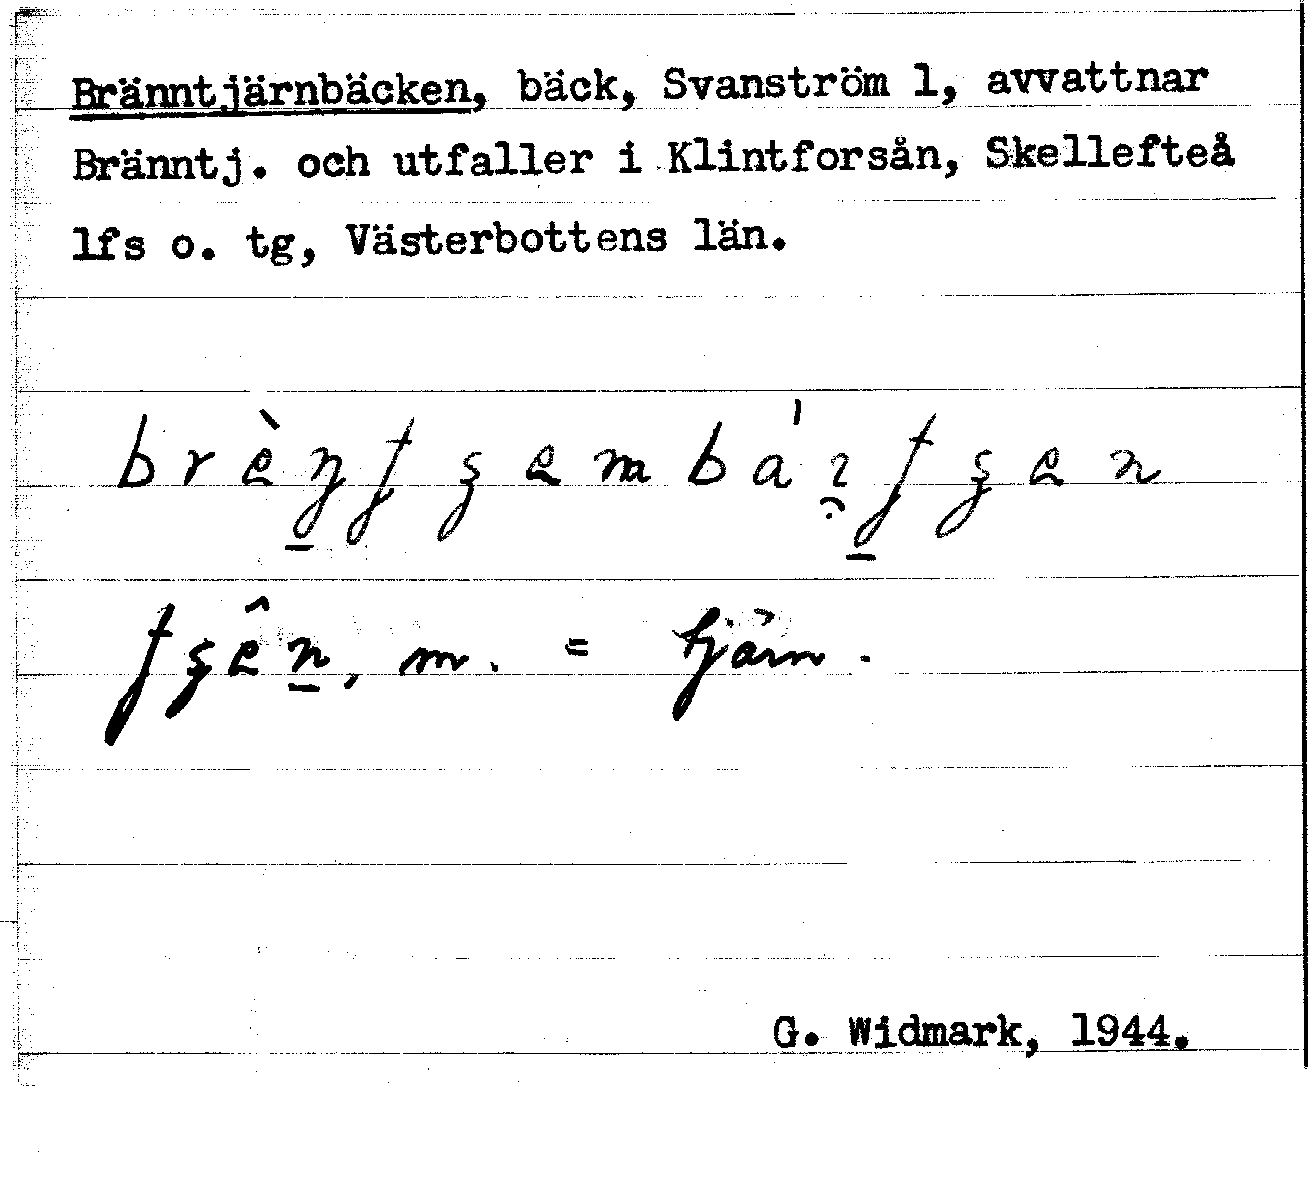 Bränntjärnbäcken, bäck, Svanström 1, avvattnar
Bränntj. och utfaller i Klintforsån, Skellefteå
lfs o. tg, Västerbottens län.
m. = tjärn.
G. Widmark, 1944.